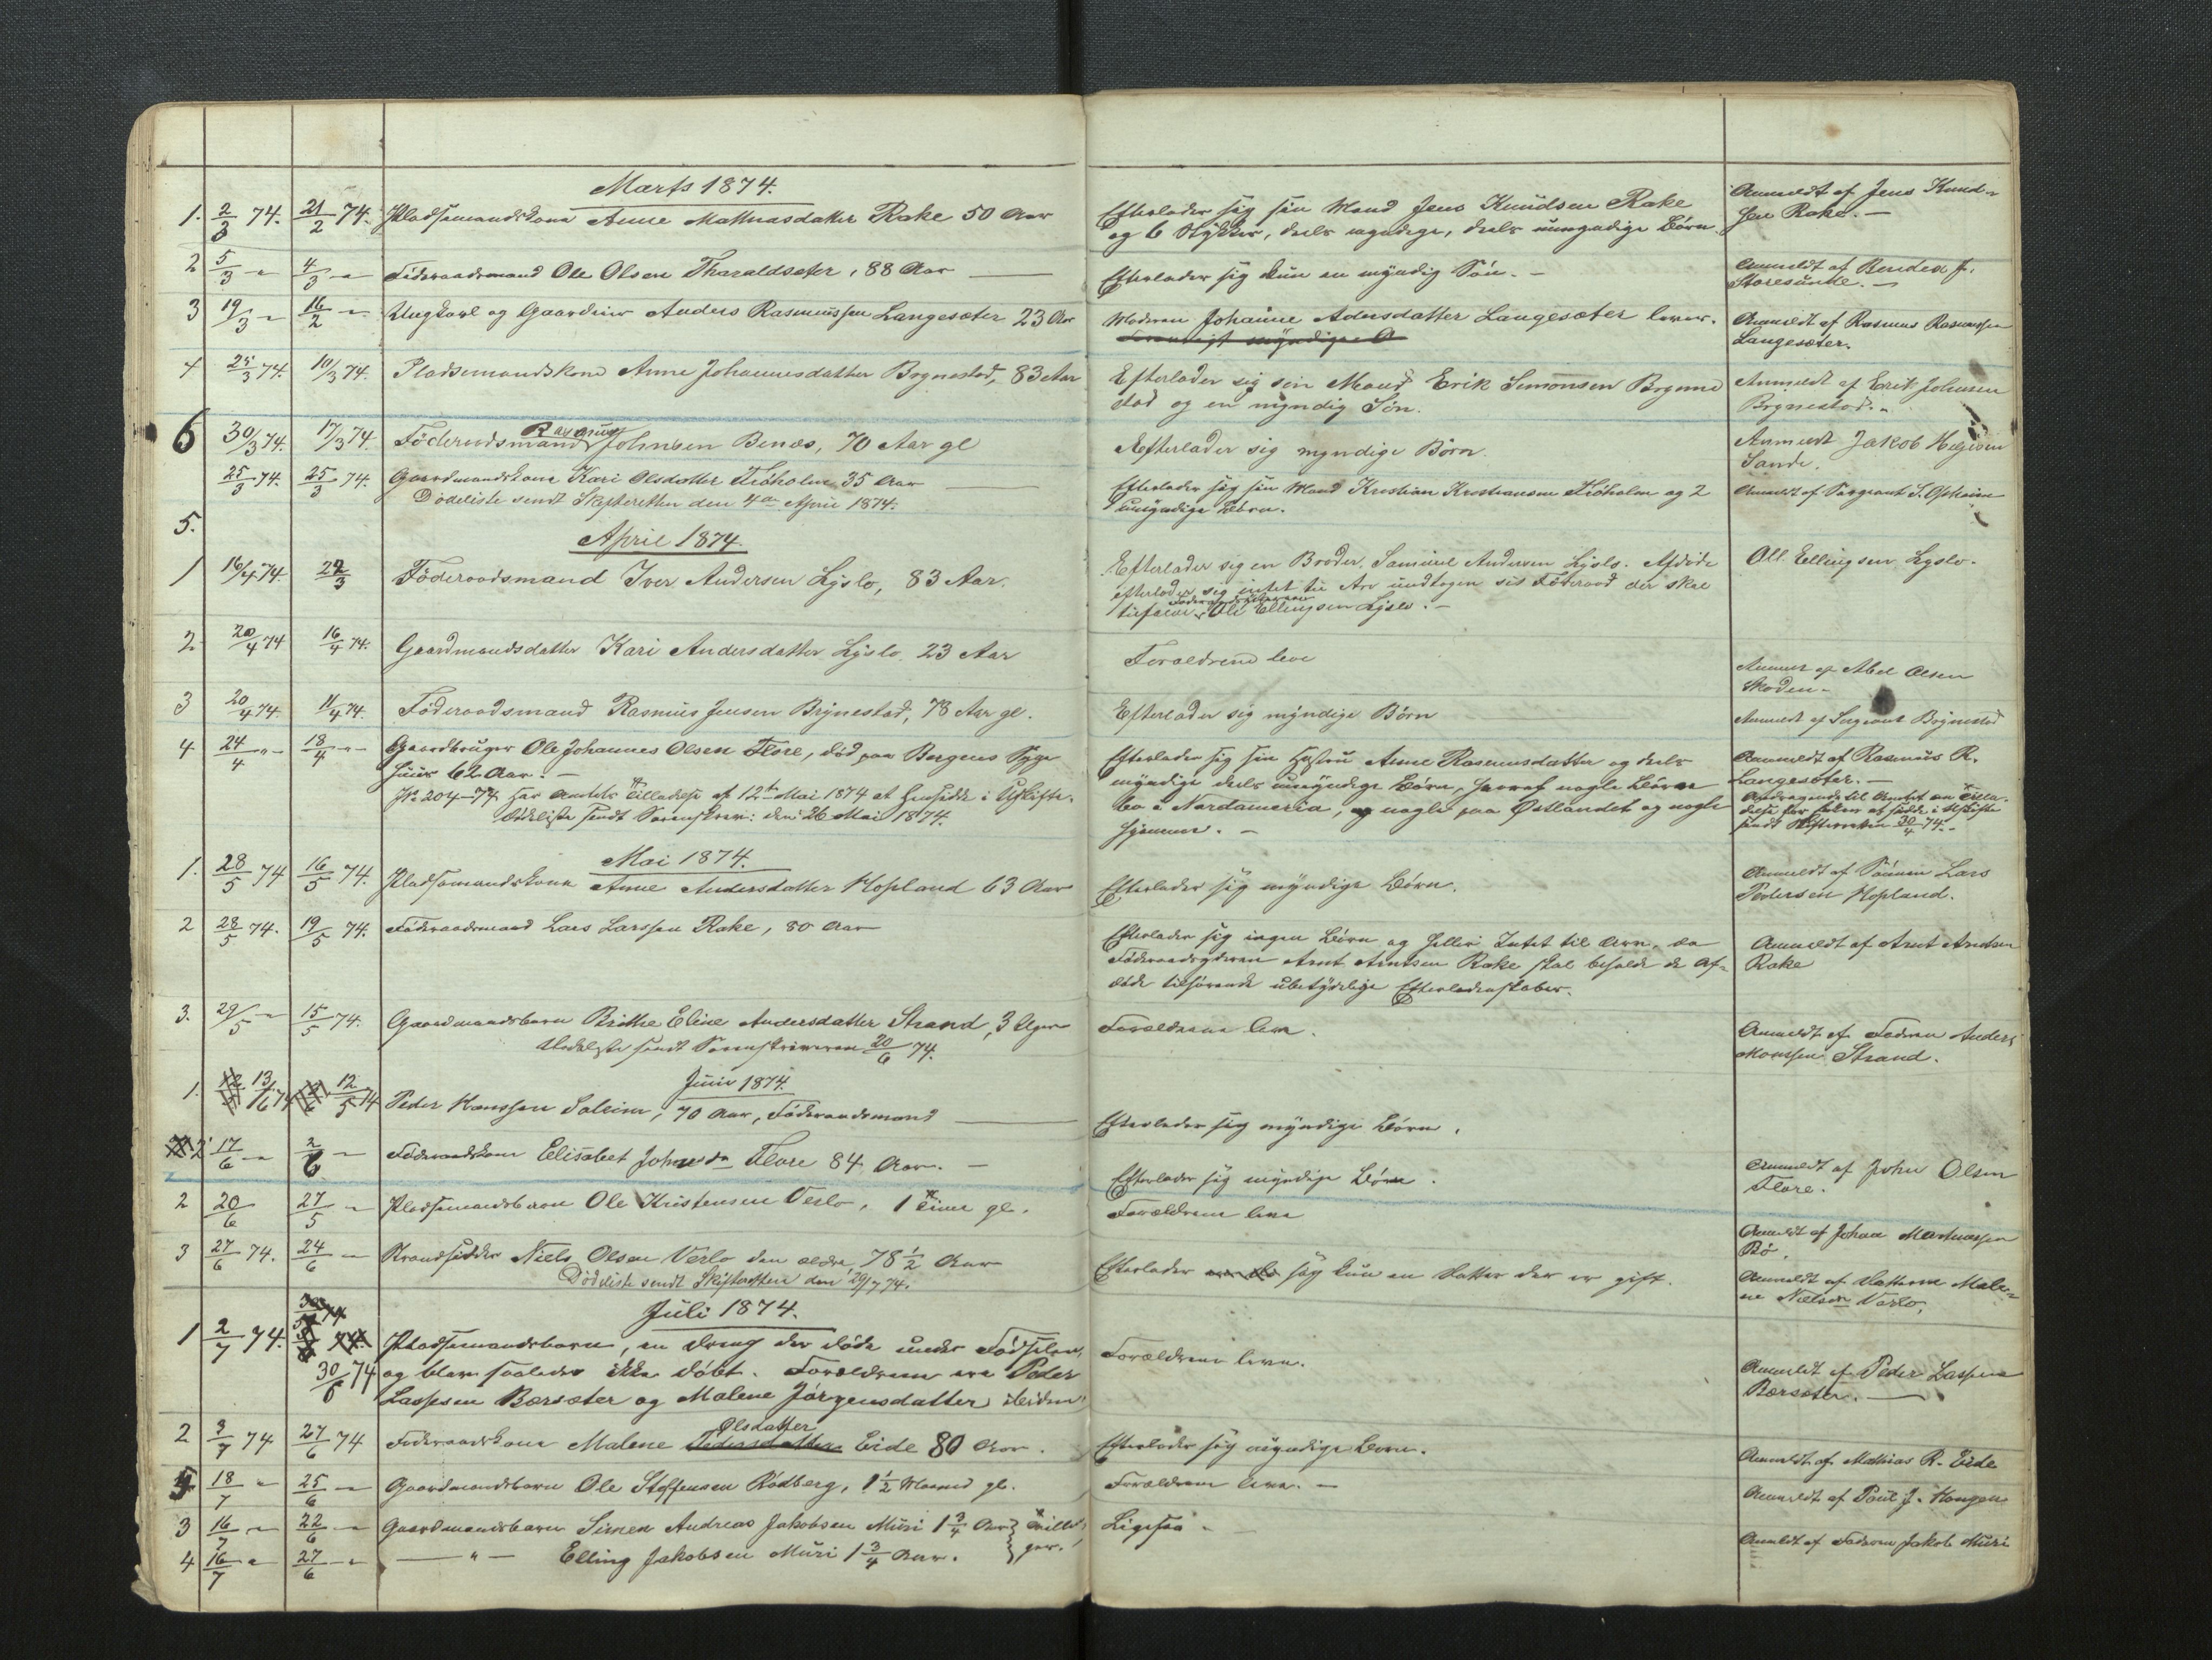 Marts 1874.
1. 2/3 74. 21/2 74. Pladsemandskone Anne Mathiasdatter Rake 50 Aar
Efterlader sig sin Mand Jens Knudsen Rake
og 6 Stykker, deels myndige, deels umyndige Børn.
Anmeldt af Jens Knud-
sen Rake. —
2 5/3 " 4/3 " Föderaadsmand Ole Olsen Tharaldsæter, 88 Aar —
Efterlader sig kun en myndig Sön. —
Anmeldt af
Storesunde. —
3 19/3 " 16/2 " Ungkarl og Gaardeier Anders Rasmussen Langesæter 23 Aar
Moderen Johanne Adersdatter Langesæter lever.
Anmeldt af Rasmus Rasmussen
Langesæter.
4 25/3 74. 10/3 74. Pladsemandskone Anne Johannesdatter Brynestad, 83 Aar
Efterlader sig sin Mand Erik Simonsen Brynne
stad og en myndig Søn.
Anmeldt af Erik Johnsen
Brynestad. "
6 30/3 74. 17/3 74. Föderaadsmand Rasmus Johnsen Benæs, 70 Aar gl
Efterlader sig myndige Børn.
Anmeldt Jakob Helgesen
Sande.
25/3 74. 25/3 74. Gaardmandskone Kari Olsdatter Hióholm 35 Aar —
Efterlader sig sin Mand Kristian Kristiansen Hióholm og 2
umyndige Børn.
Anmeldt af Sergeant S. Opheim
Dödeliste sendt Skifteretten den 4de April 1874.
5.
April 1874
1 16/4 74. 22/3 Föderaadsmand Iver Andersen Lyslo, 83 Aar.
Efterlader sig en Broder, Samuel Andersen Lyslo. Afdøde
efterlader sig intet til Arv undtagen sit Föderaad der skal
tilfalde Föderaadsyderen Ole Ellingsen Lyslo. —
Oll. Ellingsen Lyslo.
2 20/4 74 16/4 74. Gaardmandsdatter Kari Andersdatter Lyslo 23 Aar
Forældrene leve
Anmeldt af Abel Olsen
Skoden —
3 20/4 74. 11/4 74. Föderaadsmand Rasmus Jensen Brynestad, 78 Aar gl.
Efterlader sig myndige Børn
Anmeldt af Sergeant Brynestad
4 24/4 " 18/4 " Gaardbruger Ole Johannes Olsen Flore, död paa Bergens Syge
huus 62 Aar. —
Efterlader sig sin Hustru Anne Rasmusdatter og deels
myndige deels umyndige Børn, hvoraf nogle Børn
bo i Nordamerica, og nogle paa Østlandet og nogle
hjemme. —
Anmeldt af Rasmus R.
Langesæter. —
Andragende til Amtet om Tilla-
delse for Enken at sidde i Uskifte
sendt Skifteretten 30/4 74. —
No 204-74 har Amtets Tilladelse af 12te Mai 1874 at hensidde i Uskifte.
Dödeliste sendt Sorenskriv: den 26 Mai 1874.
Mai 1874.
1. 28/5 74 16/5 74. Pladsemandskone Anne Andersdatter Hopland 63 Aar
Efterlader sig myndige Børn.
Anmeldt af Sønnen Lars
Pedersen Hopland.
2 28/5 74. 19/5 74. Föderaadsmand Lars Larssen Rake, 80 Aar
Efterlader sig ingen Børn og heller Intet til Arv, da
Föderaadsyderen Arnt Arntsen Rake skal beholde de Af-
döde tilhørende ubetydelige Efterladenskaber.
Anmeldt af Arnt Arntsen
Rake
3. 29/5 " 15/5 74. Gaardmandsbarn Brithe Eline Andersdatter Strand, 3 Uger
Forældrene leve.
Anmeldt af Faderen Anders
Monssen Strand.
Dödeliste sendt Sorenskriveren 20/6 74.
Juni 1874.
1. 13/6 74 12/5 74 Peder Hanssen Soleim, 70 Aar, Föderaadsmand —
Efterlader sig myndige Børn.
2 17/6 " 2/6 " Föderaadskone Elisabet Johnsdr Flore 84 Aar. —
Efterlader sig myndige Børn.
Anmeldt af John Olsen
Flore.
2 20/6 27/5 " Pladsemandsbarn Ole Kristensen Verlo, 1 Time gl.
Forældrene leve
Anmeldt af Johan Martinussen
Bö.
3 27/6 74. 24/6 " Strandsidder Niels Olsen Verlo den ældre, 78 1/2 Aar
Efterlader sig kun en Datter der er gift.
Anmeldt af Datteren Male-
ne Nielsdr Verlo.
Dödeliste sendt Skifteretten den 29/7 74.
Juli 1874.
1 2/7 74. 30/6 74 Pladsemandsbarn, en Dreng der döde under Födselen,
og blev saaledes ikke döbt. Forældrene ere Peder
Lassesen Bærsæter og Malene Jörgensdatter ibidem.
Forældrene leve.
Anmeldt af Peder Lassesen
Bærsæter. —
2 3/7 74 27/6 74 Föderaadskone Malene Olsdatter Eide 80 Aar.
Efterlader sig myndige Børn.
Anmeldt af Mathias R. Eide
5 18/7 " 25/6 " Gaardmandsbarn Ole Steffensen Rødberg, 1 1/2 Maaned gl.
Forældrene leve. —
Anmeldt af Poul J. Kongen
3 16/7 " 22/6 " Gaardmandsbarn Simen Andreas Jakobsen Muri 1 3/4 Aar } Tvillin-
4 16/7 " 27/6 " — " — Elling Jakobsen Muri 1 3/4 Aar. } ger.
Ligesaa "
Anmeldt af Faderen Jakob Muri